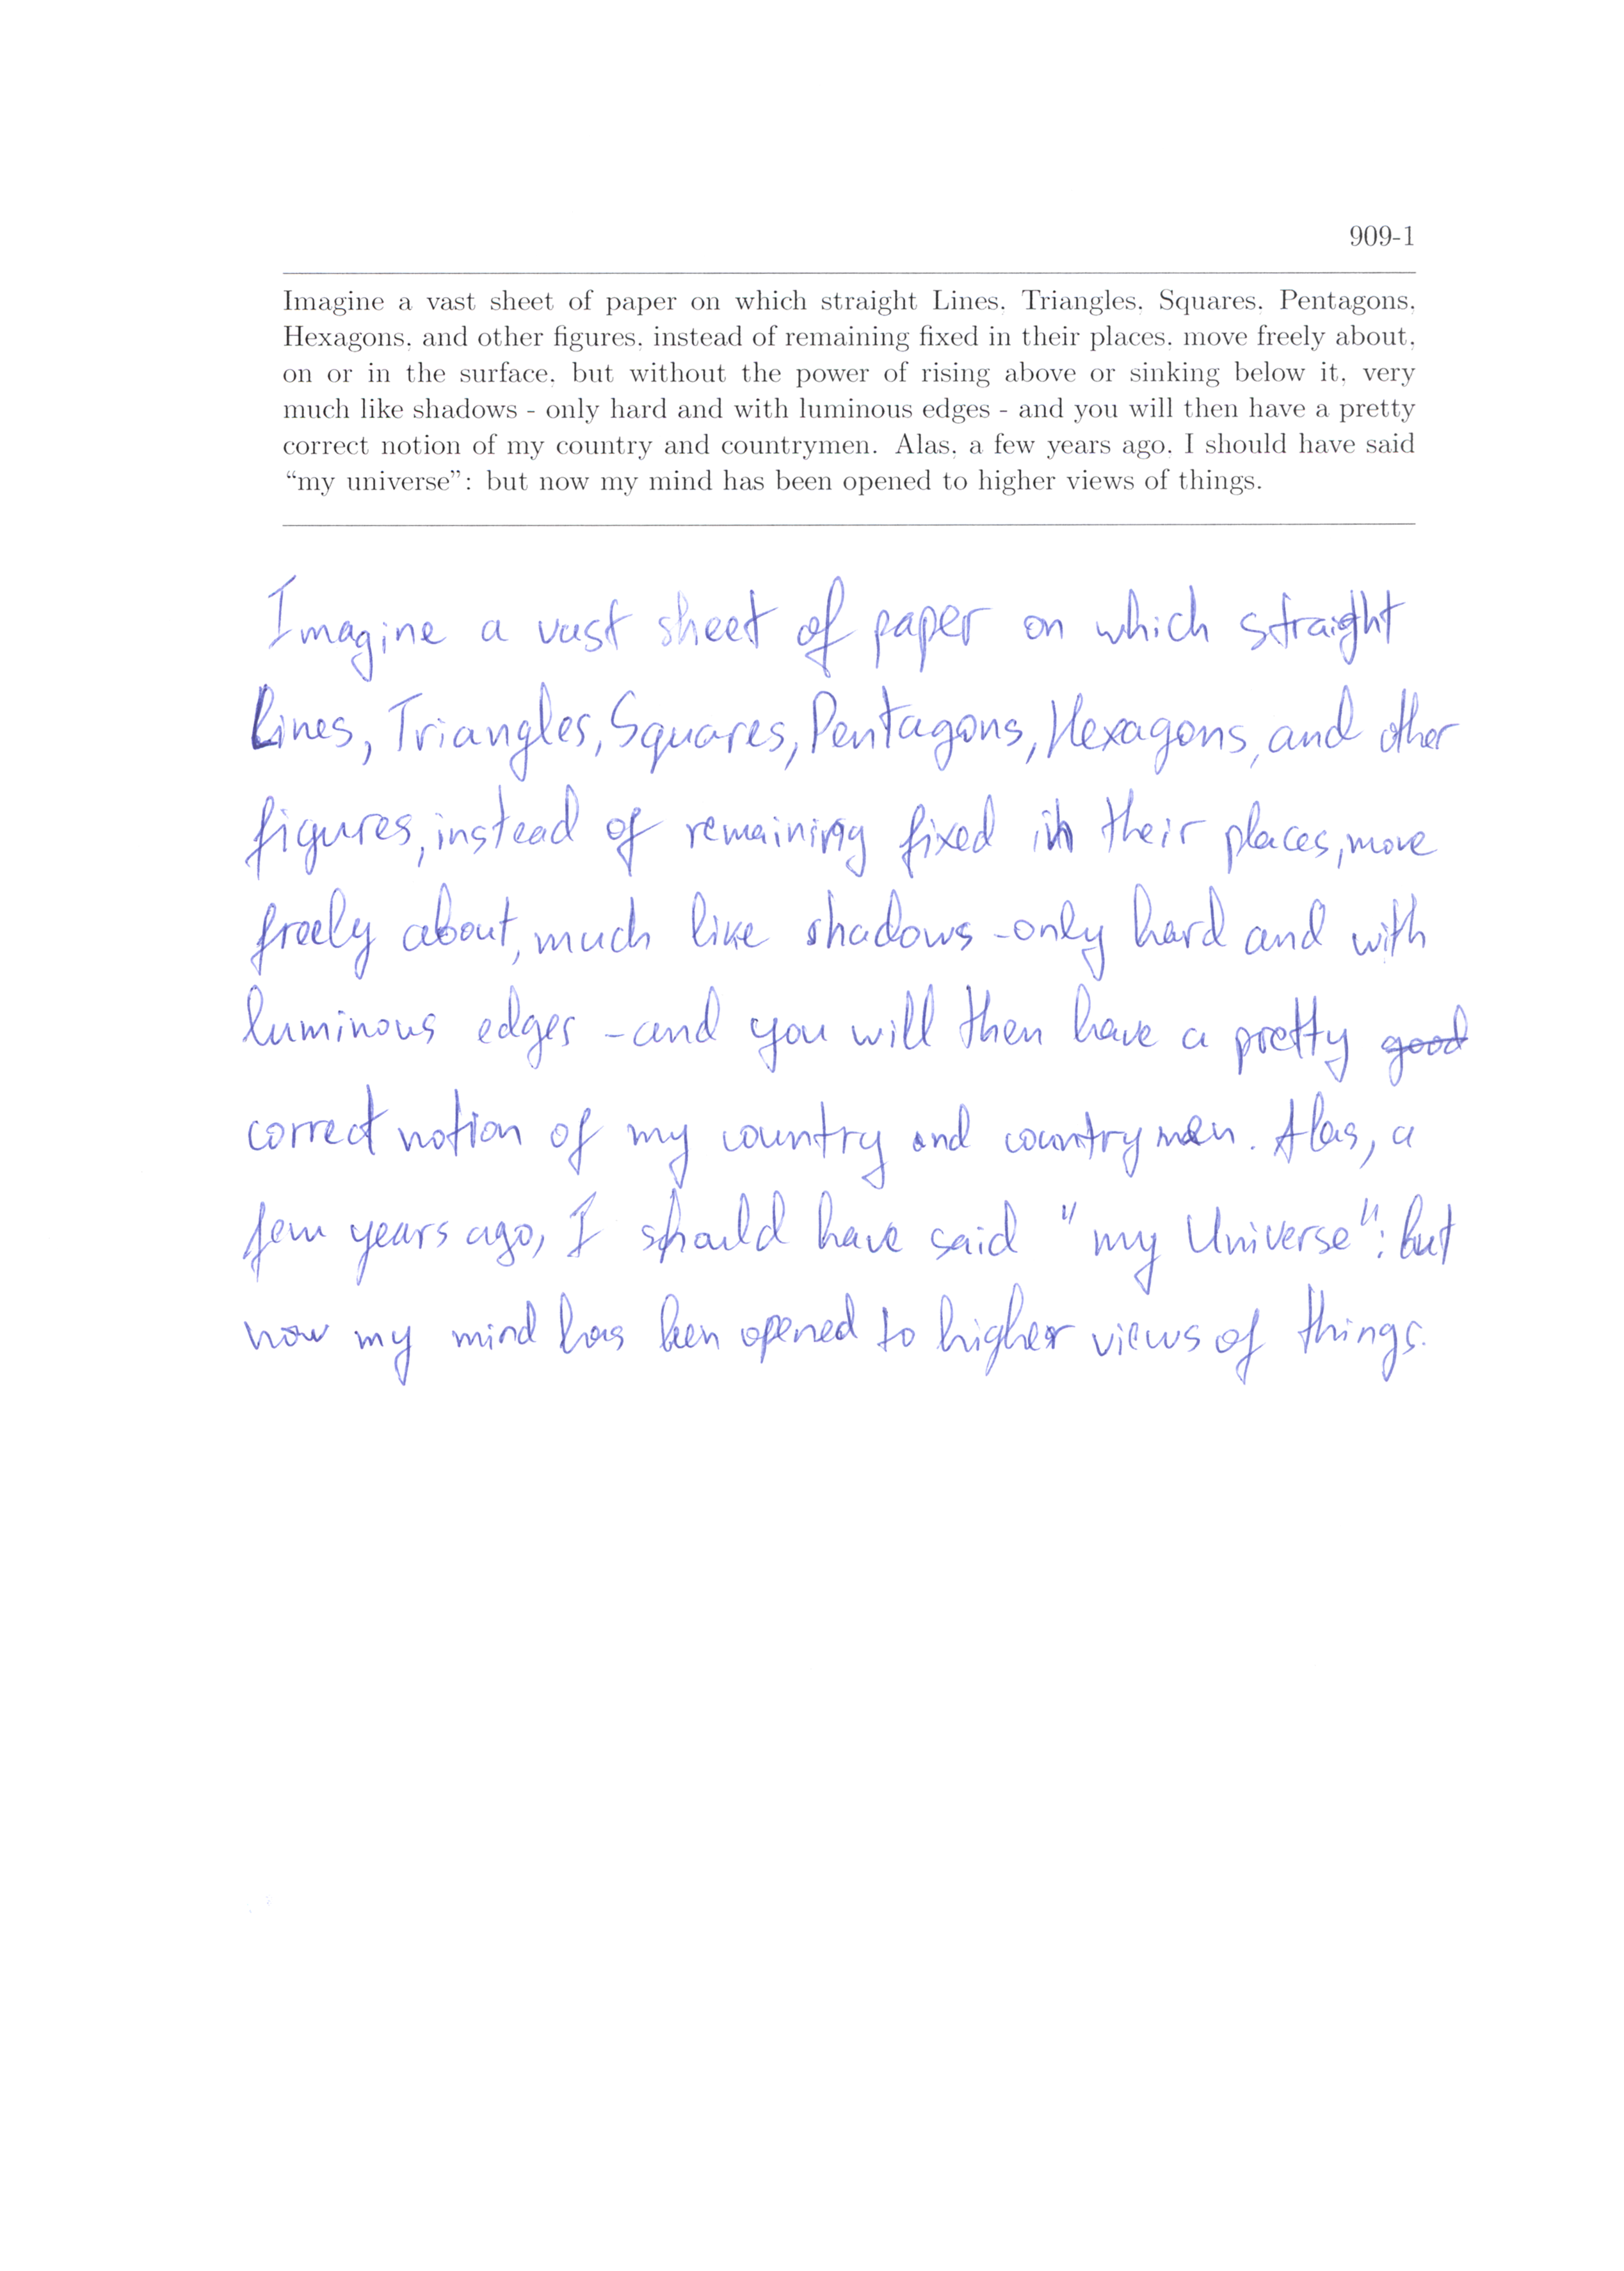 909-1
Imagine a vast sheet of paper on which straight Lines, Triangles, Squares, Pentagons,
Hexagons, and other figures, instead of remaining fixed in their places, move freely about,
on or in the surface, but without the power of rising above or sinking below it, very
much like shadows - only hard and with luminous edges - and you will then have a pretty
correct notion of my country and countrymen. Alas, a few years ago, I should have said
“my universe”: but now my mind has been opened to higher views of things.
Imagine a vast sheet of paper on which straight
Lines, Triangles, Squares, Pentagons, Hexagons, and other
figures, instead of remaining fixed in their places, move
freely about, much like shadows - only hard and with
luminous edges - and you will then have a pretty good
correct notion of my country and countrymen. Alas, a
few years ago, I should have said "my Universe": but
now my mind has been opened to higher views of things.